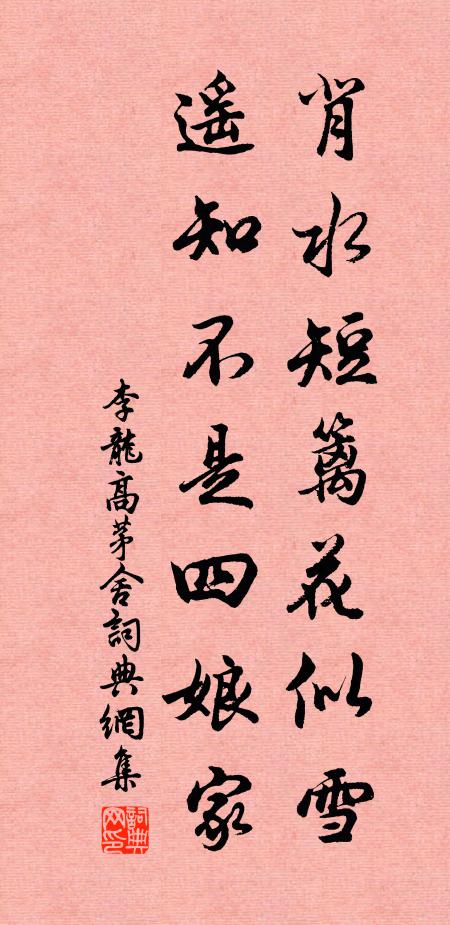 肖水短篱花似雪
遥知不是四娘家
李龍高茅舍詞典網集
詞典
网印